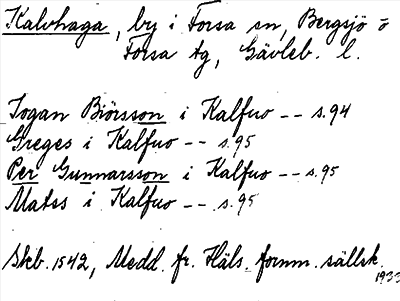 Kalvhaga, by i Forsa sn, Bergsjö o
Forsa tg, Gävleb. l.
Jogan Biörsson i Kalfuo -- s. 94
Greges i Kalfuo -- s. 95
Per Gunnarsson i Kalfuo -- s. 95
Matss i Kalfuo -- s. 95
Skb. 1542, Medd. fr. Häls. fornm. sällsk.
1933